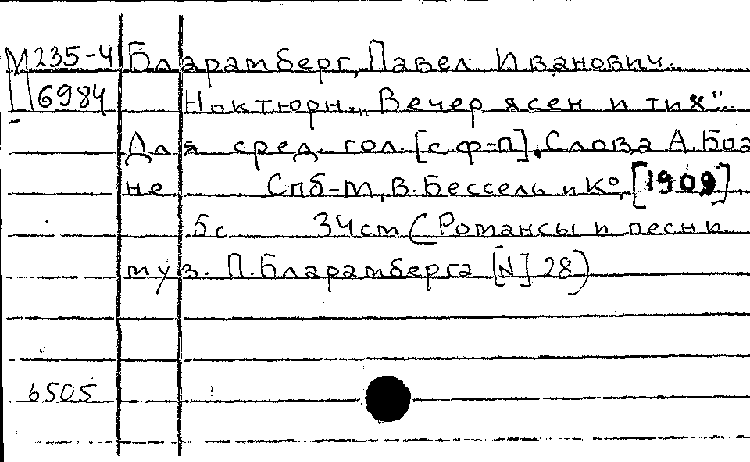 М 235-4 Бларамберг, Павел Иванович.
П 6984 Ноктюрн. „Вечер ясен и тих".
Для сред. гол. [с ф-п]. Слова А. Боа
не Спб-М, В. Бессель и Ко, [1909]
5с 34см (Романсы и песни
муз. П. Бларамберга [N] 28)
6505